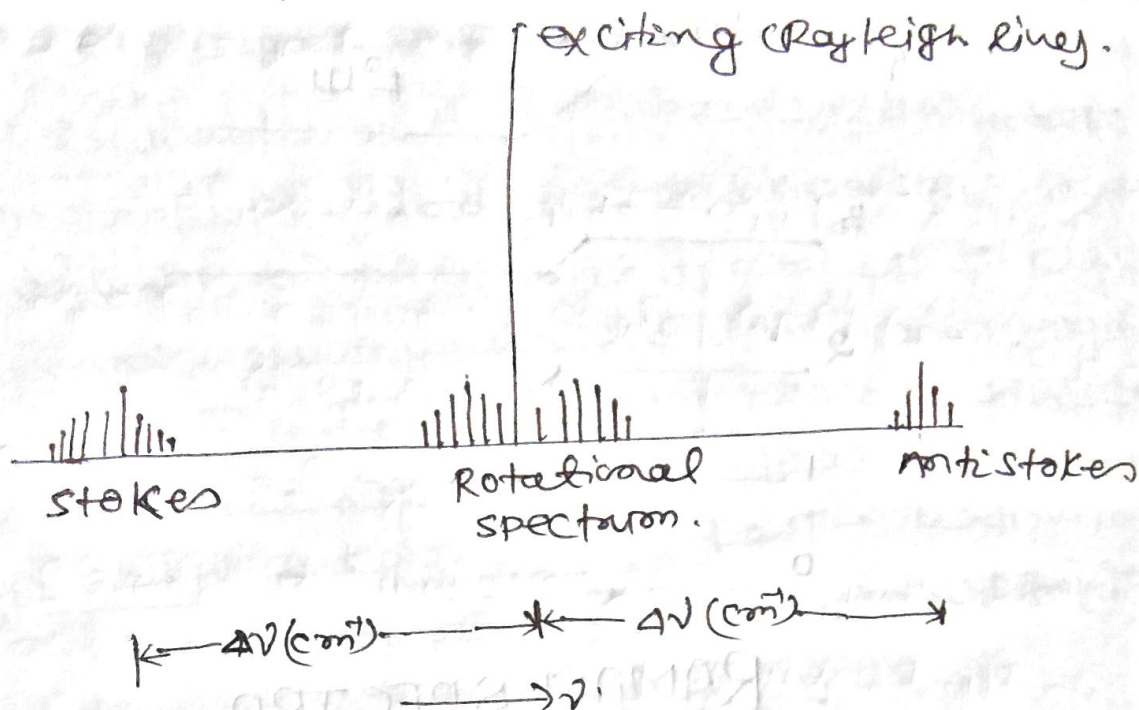 exciting (Rayleigh lines.
stokes
Rotational
spectrum.
Antistokes
Δν(cm⁻¹)
Δν(cm⁻¹)
ν